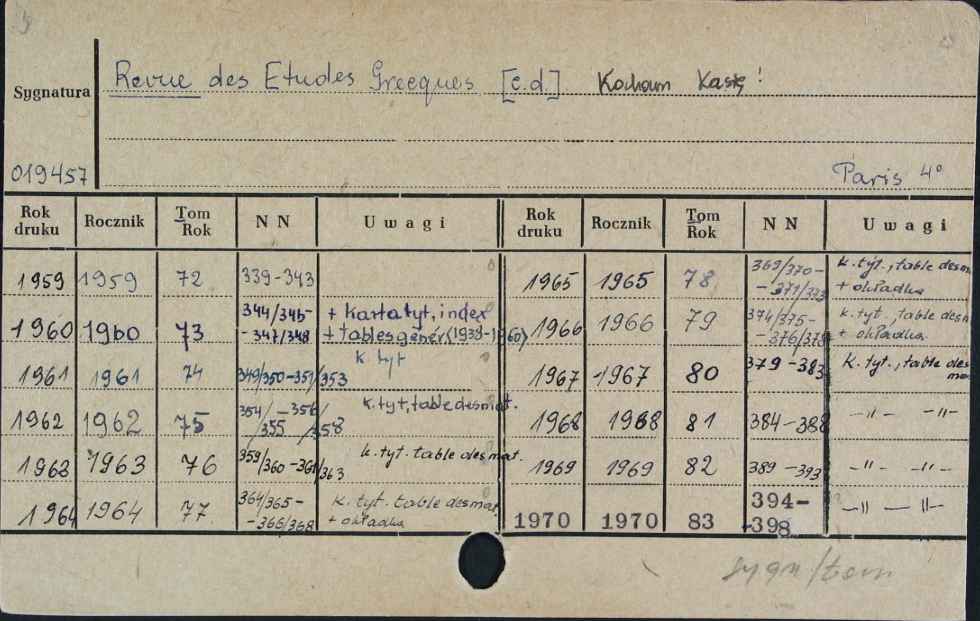 Revue des Etudes Grecques [c.d.] Kocham Kasię!
Sygnatura
019457 Paris 4°
Rok druku Rocznik Tom Rok NN Uwagi Rok druku Rocznik Tom Rok NN Uwagi
1959 1959 72 339-343 1965 1965 78 369/370- k. tyt., table des m
-371/373 + okładka
1960 1960 73 344/345- + karta tyt, index 1966 1966 79 374/375- k. tyt., table des m
-347/348 + tables génér. (1938-1960) -376/378 + okładka
1961 1961 74 349/350-351/353 k tyt 1967 1967 80 379-383 k. tyt., table des mat
1962 1962 75 354/ -356/ k. tyt, table des mat. 1968 1968 81 384-388 -"- -"-
/355 /358
1963 1963 76 359/360-361/363 k. tyt. table des mat. 1969 1969 82 389-393 -"- -"-
1964 1964 77 364/365- k. tyt. table des mat 1970 1970 83 394- -"- -"-
-366/368 + okładka -398